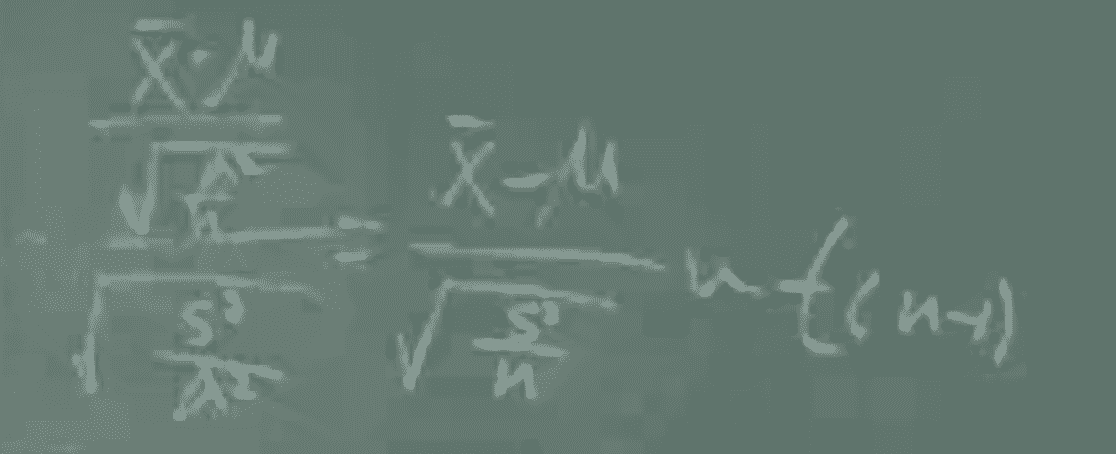 \frac{\frac{\bar{X}-\mu}{\sqrt{\frac{\lambda^2}{n}}}}{\sqrt{\frac{S^2}{\lambda^2}}} = \frac{\bar{X}-\mu}{\sqrt{\frac{S^2}{n}}} \sim t(n-1)